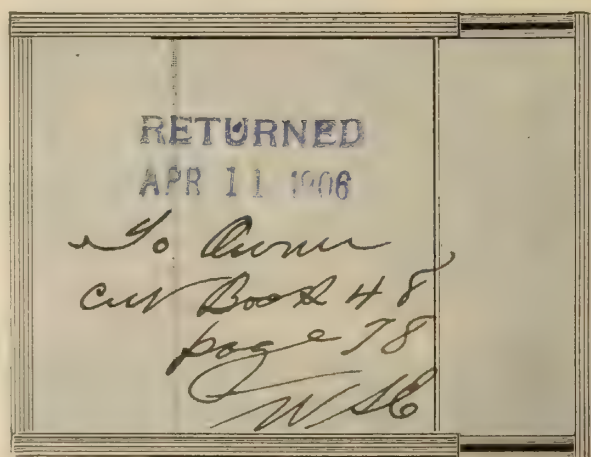 RETURNED
APR 11 1906
To Owner
Cut Book 48
page 78